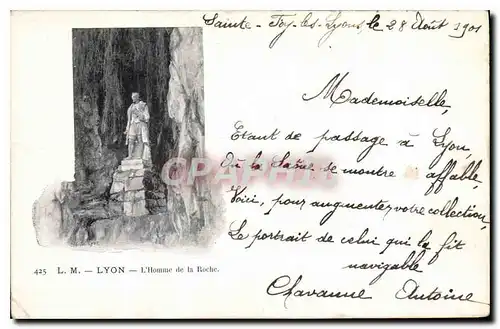 Sainte-Foy-lès-Lyon, le 28 Août 1901
Mademoiselle,
Etant de passage à Lyon,
Où la Saône se montre affable,
Voici, pour augmenter votre collection,
Le portrait de celui qui la fit
navigable
Chavanne Antoine
425 L. M. — LYON — L'Homme de la Roche.